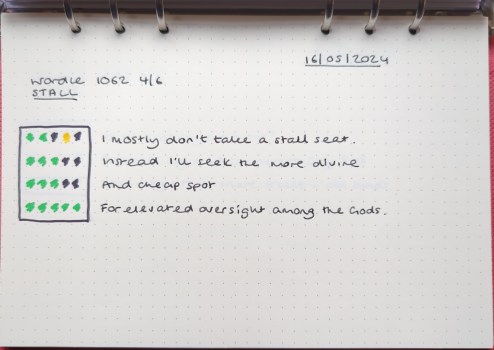 16/05/2024
Wordle 1062 4/6
STALL
I mostly don't take a stall seat.
Instead I'll seek the more divine
And cheap spot
For elevated oversight among the Gods.